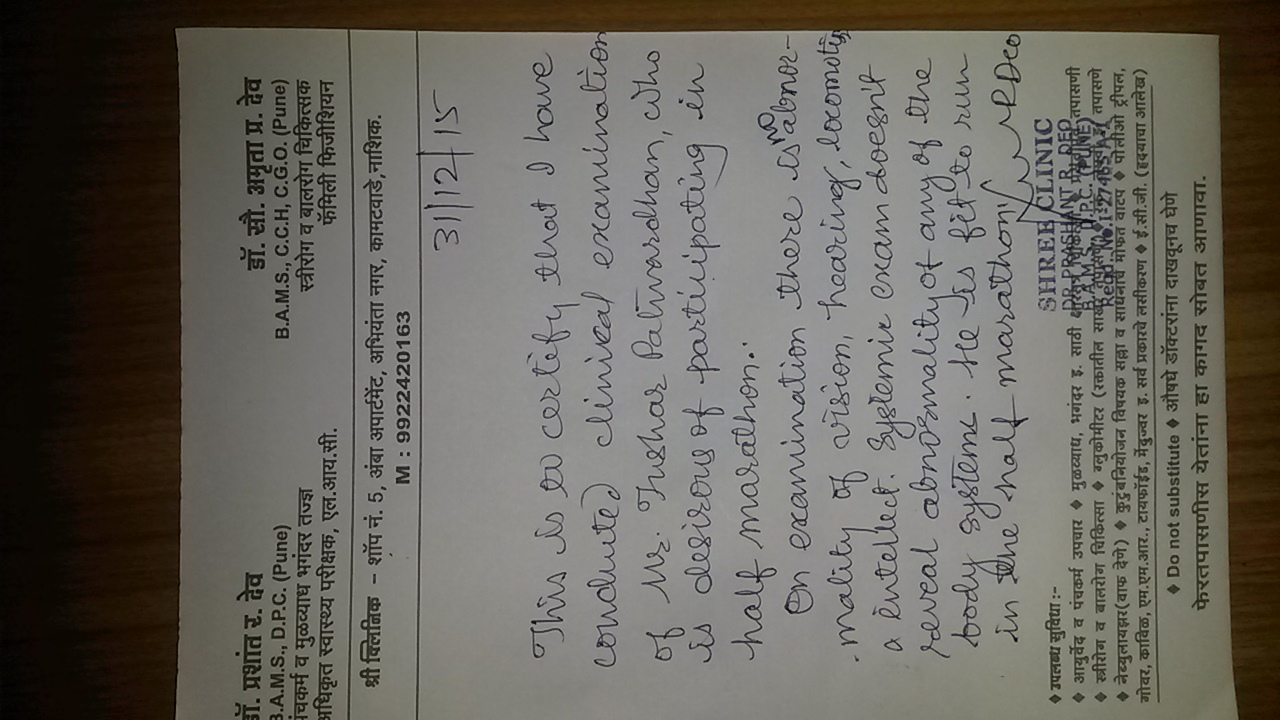 डॉ. प्रशांत र. देव
B.A.M.S., D.P.C. (Pune)
पंचकर्म व मुळव्याध भगंदर तज्ज्ञ
अधिकृत स्वास्थ्य परीक्षक, एल.आय.सी.
डॉ. सौ. अमृता प्र. देव
B.A.M.S., C.C.H, C.G.O. (Pune)
स्त्रीरोग व बालरोग चिकित्सक
फॅमिली फिजीशियन
श्री क्लिनीक – शॉप नं. 5, अंबा अपार्टमेंट, अभियंता नगर, कामटवाडे, नाशिक.
M : 9922420163
31/12/15
This is to certify that I have
conduted clinical examination
of Mr. Tushar Patwardhan, who
is desirous of participating in
half marathon.
On examination there is no abnor-
mality of vision, hearing, locomotion
a entellect. Systemic exam doesn't
reveal abnormality of any of the
body systems. He is fit to run
in the half marathon.
PRDeo
SHREE CLINIC
DR. PRASHANT R. DEO
B.A.M.S., D.P.C. (PUNE)
Regd. No. I-27465 A1
♦ उपलब्ध सुविधा :-
♦ आयुर्वेद व पंचकर्म उपचार ♦ मुळव्याध, भगंदर इ. साठी तपासणी
♦ स्त्रीरोग व बालरोग चिकित्सा ♦ ग्लुकोमीटर (रक्तातील साखर तपासणे
♦ नेब्युलायझर(वाफ देणे) ♦ कुटुंबनियोजन विषयक सल्ला व साधनांचे मोफत वाटप ♦ पोलीओ ट्रीपल,
गोवर, काविळ, एम.एम.आर., टायफॉईड, मेंदुज्वर इ. सर्व प्रकारचे लसीकरण ♦ ई.सी.जी. (हृदयाचा आलेख)
♦ Do not substitute ♦ औषधे डॉक्टरांना दाखवूनच घेणे
फेरतपासणीस येतांना हा कागद सोबत आणावा.